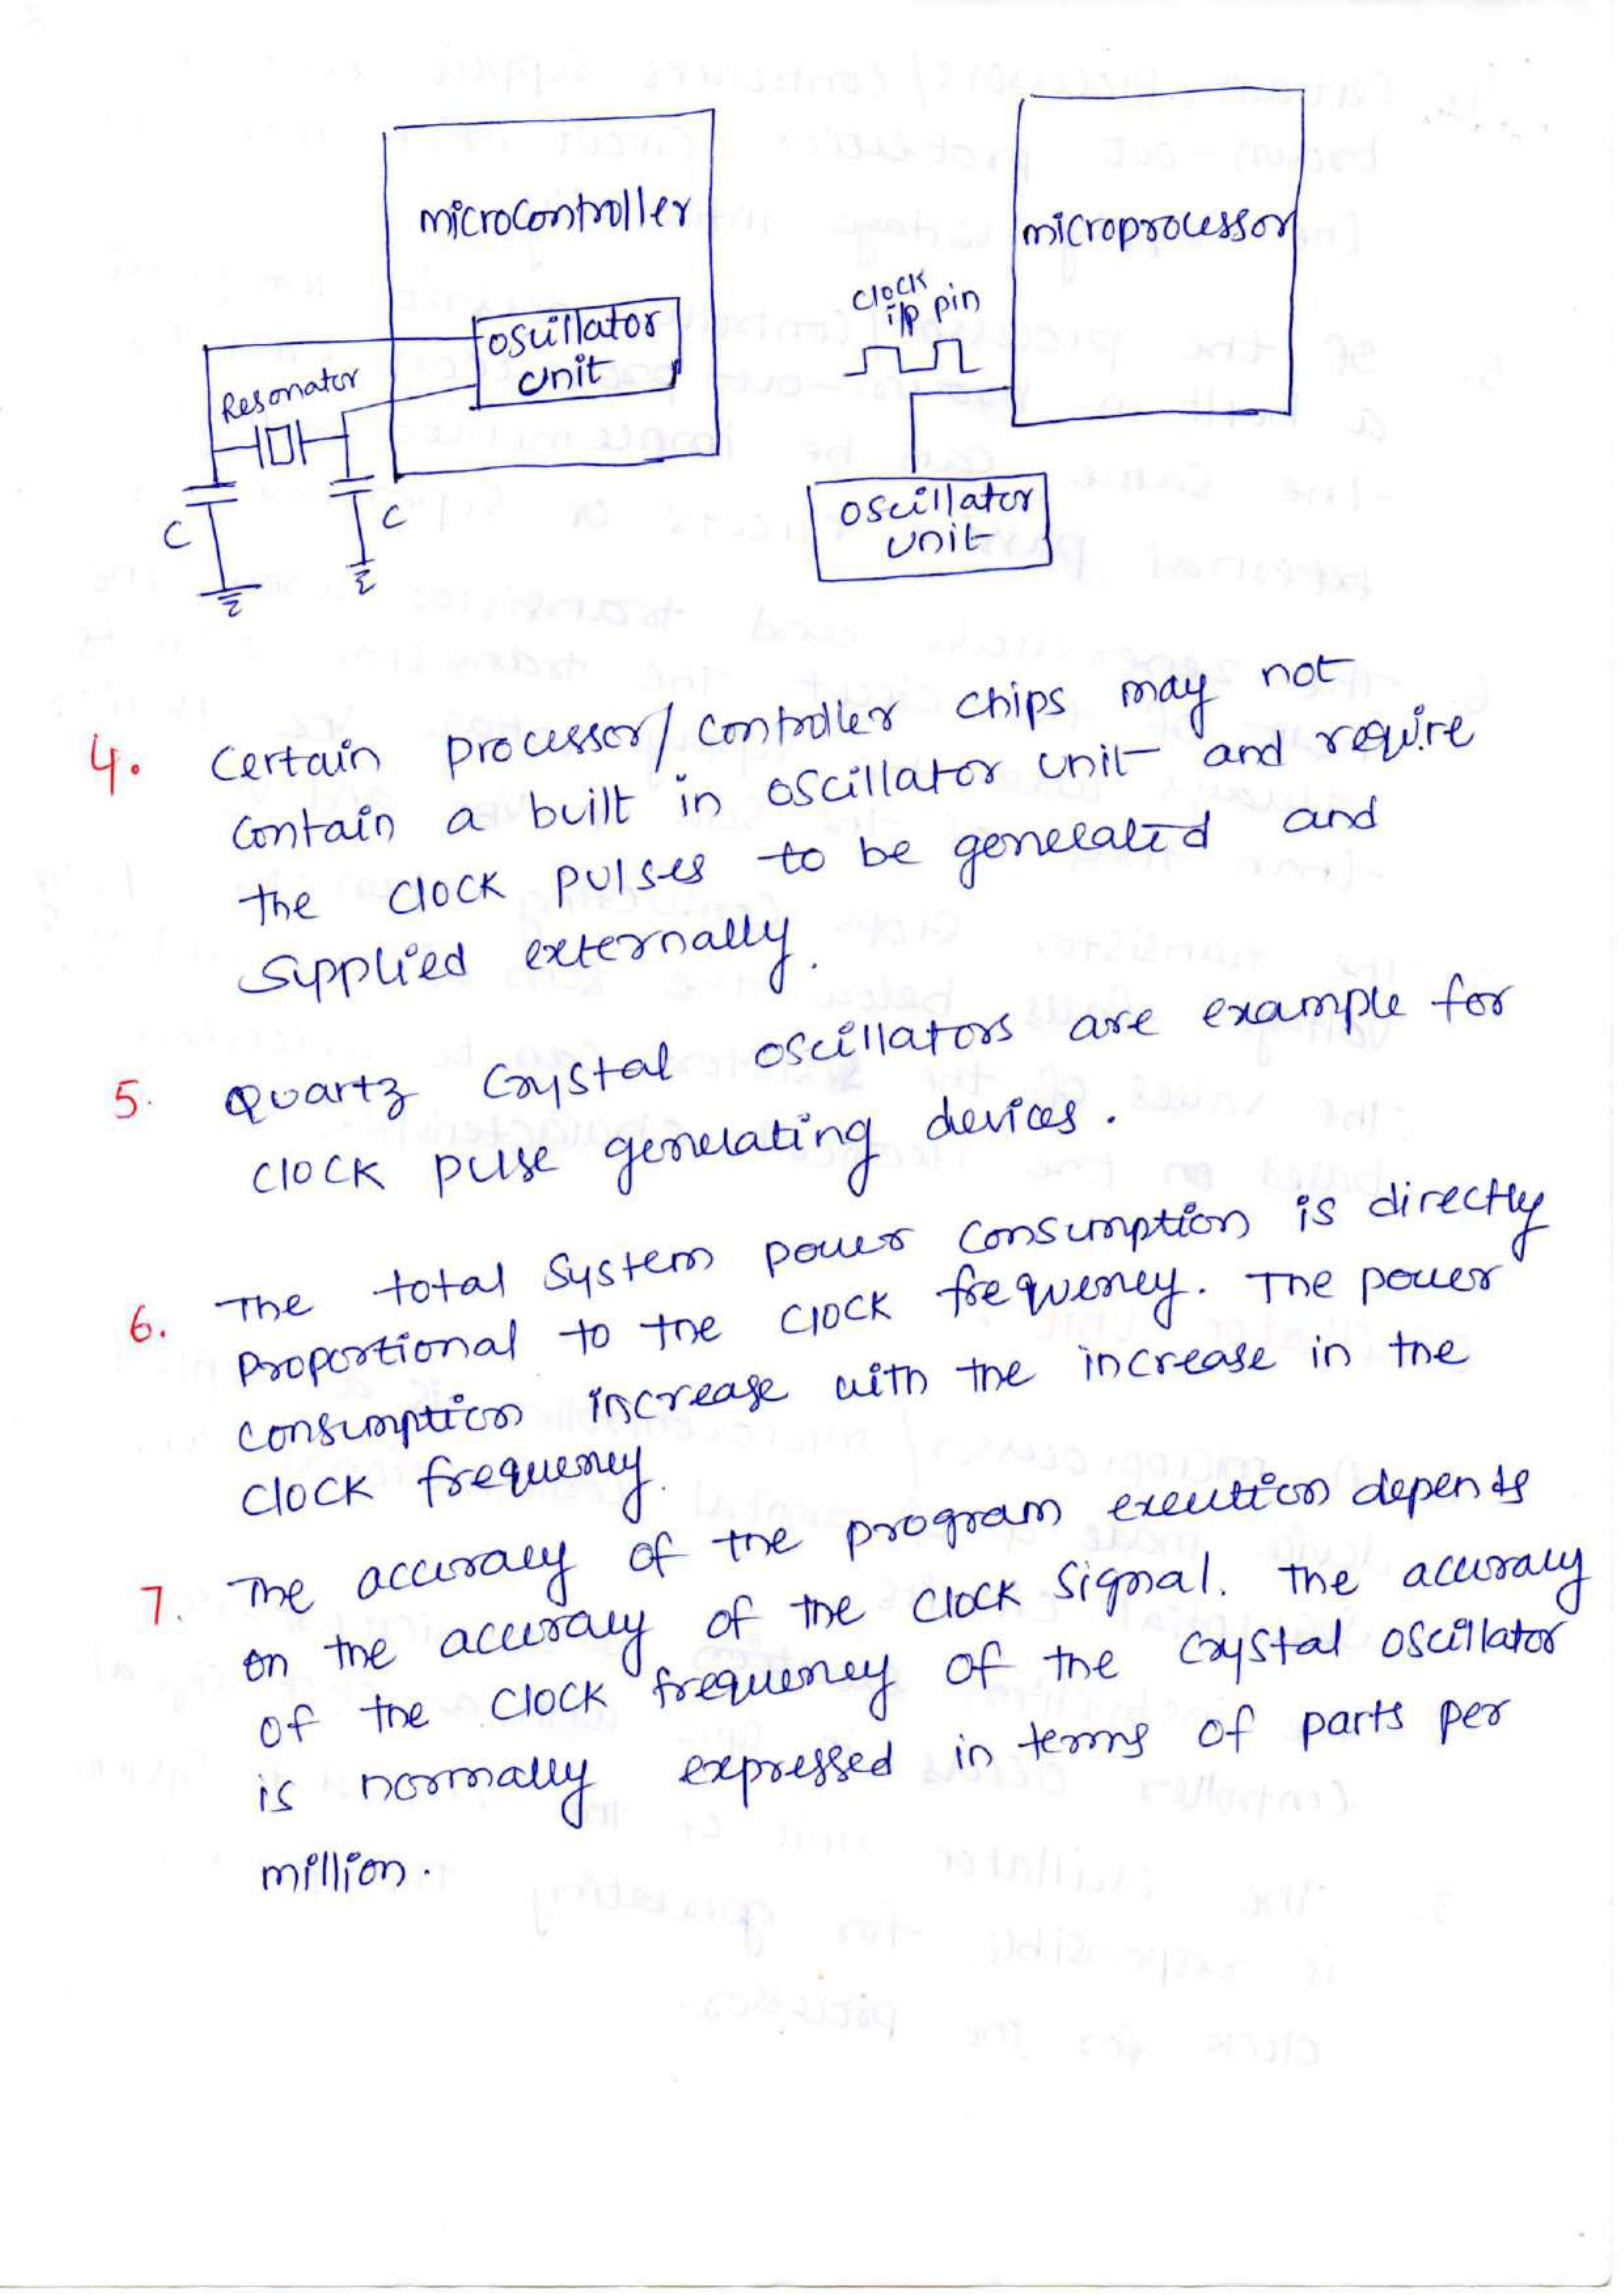 microcontroller
oscillator
unit
Resonator
C
C
microprocessor
clock
i/p pin
oscillator
unit
4. Certain processor/controller chips may not
contain a built in oscillator unit and require
the clock pulses to be generated and
supplied externally.
5. Quartz crystal oscillators are example for
clock pulse generating devices.
6. The total system power consumption is directly
proportional to the clock frequency. The power
consumption increase with the increase in the
clock frequency.
7. The accuracy of the program execution depends
on the accuracy of the clock signal. The accuracy
of the clock frequency of the crystal oscillator
is normally expressed in terms of parts per
million.